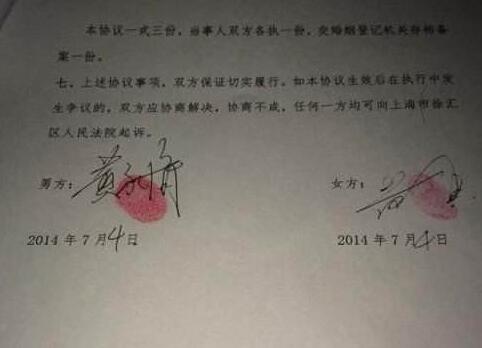 本协议一式三份，当事人双方各执一份，交婚姻登记机关存档备
案一份。
七、上述协议事项，双方保证切实履行。如本协议生效后在执行中发
生争议的，双方应协商解决，协商不成，任何一方均可向上海市徐汇
区人民法院起诉。
男方： 女方：
2014 年 7 月 4 日 2014 年 7 月 4 日